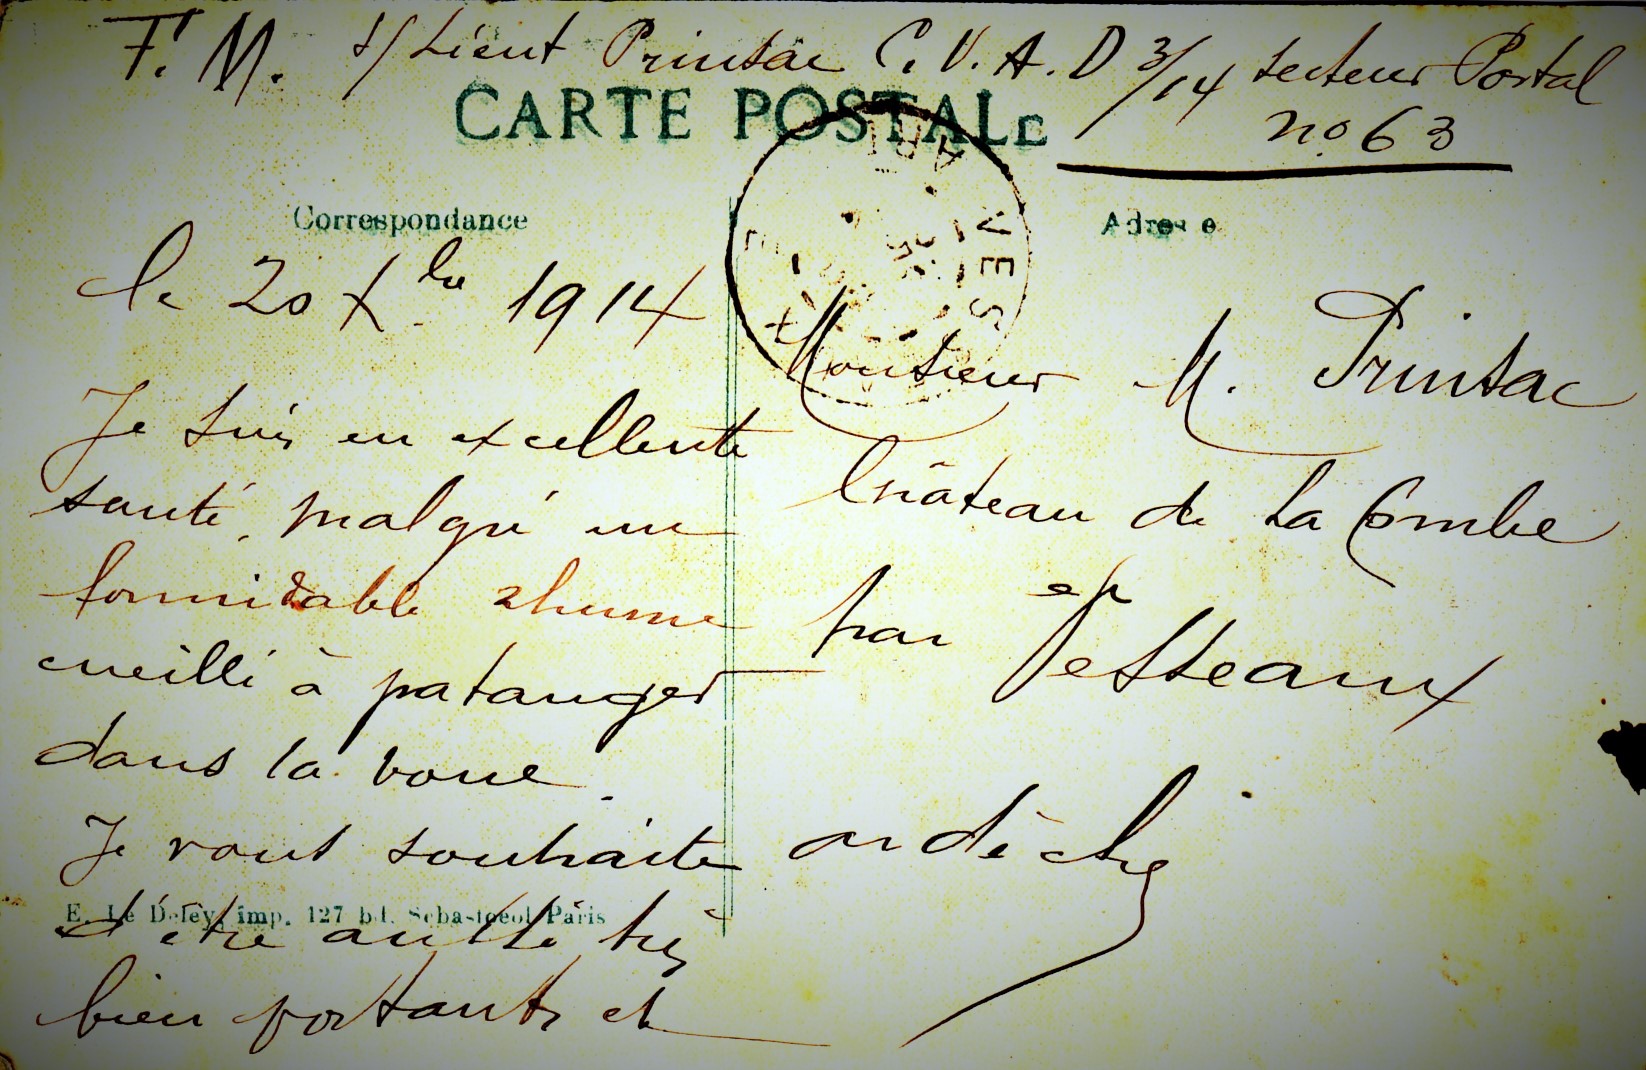 F. M. s/Lieut Prinsac C. V. A. D 3/14 secteur Postal
no 63
CARTE POSTALE
Correspondance
Adresse
le 20 Xbre 1914
Je suis en excellente
santé, malgré un
formidable rhume
cueilli à patauger
dans la boue.
Je vous souhaite
d'être aussi très
bien portants et
E. Le Deley, imp. 127 bd. Sebastopol Paris
VESSEAUX
Monsieur M. Prinsac
Château de La Combe
par Vesseaux
ardèche